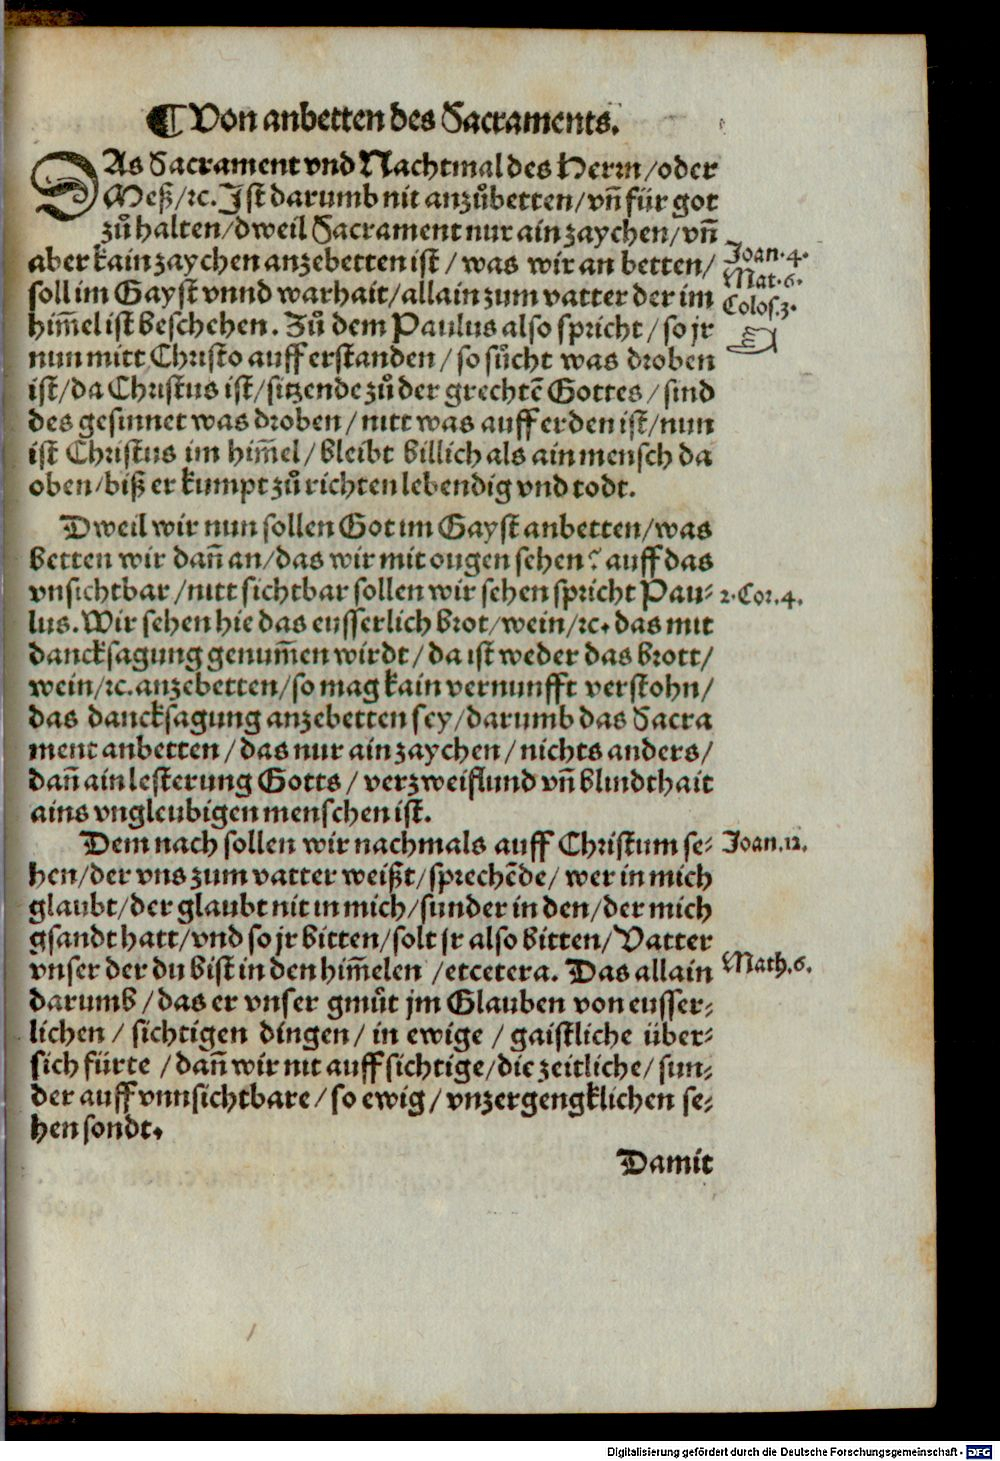 ¶ Von anbetten des Sacraments.
DAs Sacrament vnd Nachtmal des Herrn/oder
Meß/ꝛc. Ist darumb nit anzůbetten/vñ für got
zů halten/dweil Sacrament nur ain zaychen/vñ
aber kain zaychen anzebetten ist/was wir an betten/
soll im Gayst vnnd warhait/allain zum vatter der im
him̃el ist beschehen. Zů dem Paulus also spricht/so jr
nun mitt Christo auff erstanden/so sůcht was droben
ist/da Christus ist/sitzende zů der grechtẽ Gottes/sind
des gesinnet was droben/nitt was auff erden ist/nun
ist Christus im him̃el/bleibt billich als ain mensch da
oben/biß er kumpt zů richten lebendig vnd todt.
Joan.4.
Mat.6.
Colos.3.
☞
Dweil wir nun sollen Got im Gayst anbetten/was
betten wir dañ an/das wir mit ougen sehen? auff das
vnsichtbar/nitt sichtbar sollen wir sehen spricht Pau⸗
lus. Wir sehen hie das eusserlich brot/wein/ꝛc. das mit
dancksagung genum̃en wirdt/da ist weder das brott/
wein/ꝛc. anzebetten/so mag kain vernunfft verstohn/
das dancksagung anzebetten sey/darumb das Sacra
ment anbetten/das nur ain zaychen/nichts anders/
dañ ain lesterung Gotts/verzweiflund vñ blindthait
ains vngleubigen menschen ist.
2.Cor.4.
Dem nach sollen wir nachmals auff Christum se⸗
hen/der vns zum vatter weißt/sprechẽde/wer in mich
glaubt/der glaubt nit in mich/sunder in den/der mich
gsandt hatt/vnd so jr bitten/solt jr also bitten/Vatter
vnser der du bist in den him̃elen/etcetera. Das allain
darumb/das er vnser gmůt jm Glauben von eusser⸗
lichen/sichtigen dingen/in ewige/gaistliche über⸗
sich fürte/dañ wir nit auff sichtige/die zeitliche/sun⸗
der auff vnnsichtbare/so ewig/vnzergengklichen se⸗
hen sondt.
Joan.12.
Math.6.
Damit
Digitalisierung gefördert durch die Deutsche Forschungsgemeinschaft - DFG